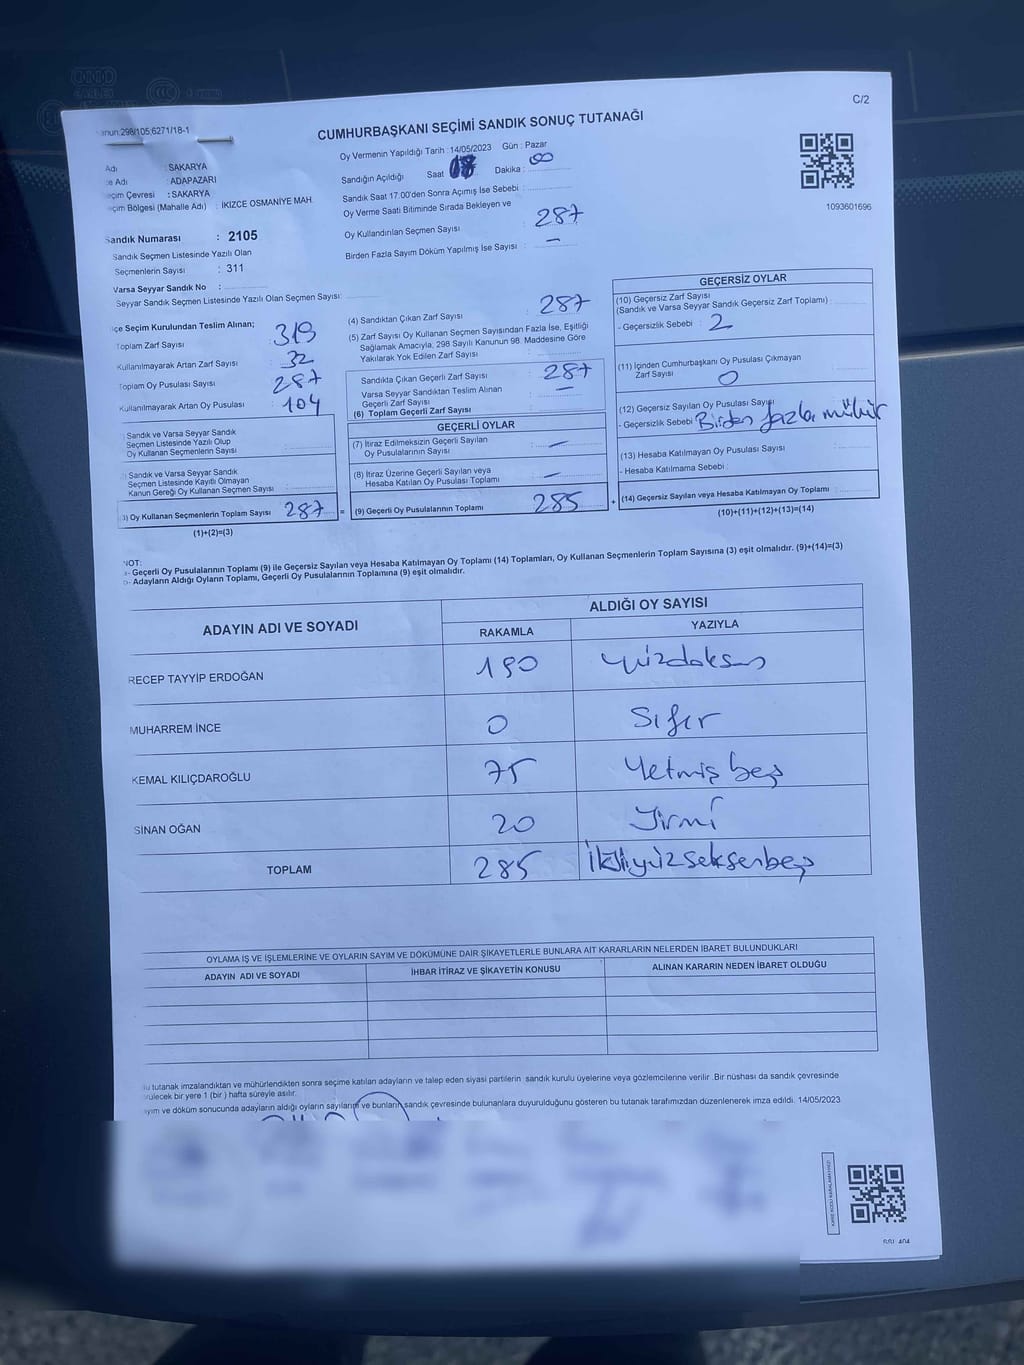 C/2
CUMHURBAŞKANI SEÇİMİ SANDIK SONUÇ TUTANAĞI
298/105;6271/18-1
Oy Vermenin Yapıldığı Tarih : 14/05/2023 Gün : Pazar
Adı : SAKARYA
Adı : ADAPAZARI
Çevresi : SAKARYA
Bölgesi (Mahalle Adı) : İKİZCE OSMANİYE MAH.
Sandık Numarası : 2105
Sandık Seçmen Listesinde Yazılı Olan
Seçmenlerin Sayısı : 311
Varsa Seyyar Sandık No :
Seyyar Sandık Seçmen Listesinde Yazılı Olan Seçmen Sayısı:
Sandığın Açıldığı Saat Dakika : 00
Sandık Saat 17.00'den Sonra Açımış İse Sebebi :
Oy Verme Saati Bitiminde Sırada Bekleyen ve
Oy Kullandırılan Seçmen Sayısı : 287
Birden Fazla Sayım Döküm Yapılmış İse Sayısı : —
1093601696
Seçim Kurulundan Teslim Alınan;
Toplam Zarf Sayısı : 319
Kullanılmayarak Artan Zarf Sayısı : 32
Toplam Oy Pusulası Sayısı : 287
Kullanılmayarak Artan Oy Pusulası : 104
Sandık ve Varsa Seyyar Sandık
Seçmen Listesinde Yazılı Olup
Oy Kullanan Seçmenlerin Sayısı :
Sandık ve Varsa Seyyar Sandık
Seçmen Listesinde Kayıtlı Olmayan
Kanun Gereği Oy Kullanan Seçmen Sayısı :
3) Oy Kullanan Seçmenlerin Toplam Sayısı 287 =
(1)+(2)=(3)
(4) Sandıktan Çıkan Zarf Sayısı : 287
(5) Zarf Sayısı Oy Kullanan Seçmen Sayısından Fazla İse, Eşitliği
Sağlamak Amacıyla, 298 Sayılı Kanunun 98. Maddesine Göre
Yakılarak Yok Edilen Zarf Sayısı :
Sandıkta Çıkan Geçerli Zarf Sayısı : 287
Varsa Seyyar Sandıktan Teslim Alınan
Geçerli Zarf Sayısı : —
(6) Toplam Geçerli Zarf Sayısı
GEÇERLİ OYLAR
(7) İtiraz Edilmeksizin Geçerli Sayılan
Oy Pusulalarının Sayısı : —
(8) İtiraz Üzerine Geçerli Sayılan veya
Hesaba Katılan Oy Pusulası Toplamı : —
(9) Geçerli Oy Pusulalarının Toplamı 285 +
GEÇERSİZ OYLAR
(10) Geçersiz Zarf Sayısı
(Sandık ve Varsa Seyyar Sandık Geçersiz Zarf Toplamı) :
- Geçersizlik Sebebi : 2
(11) İçinden Cumhurbaşkanı Oy Pusulası Çıkmayan
Zarf Sayısı 0 :
(12) Geçersiz Sayılan Oy Pusulası Sayısı
- Geçersizlik Sebebi Birden fazla mühür
(13) Hesaba Katılmayan Oy Pusulası Sayısı
- Hesaba Katılmama Sebebi
(14) Geçersiz Sayılan veya Hesaba Katılmayan Oy Toplamı
(10)+(11)+(12)+(13)=(14)
NOT:
a- Geçerli Oy Pusulalarının Toplamı (9) ile Geçersiz Sayılan veya Hesaba Katılmayan Oy Toplamı (14) Toplamları, Oy Kullanan Seçmenlerin Toplam Sayısına (3) eşit olmalıdır. (9)+(14)=(3)
b- Adayların Aldığı Oyların Toplamı, Geçerli Oy Pusulalarının Toplamına (9) eşit olmalıdır.
ADAYIN ADI VE SOYADI ALDIĞI OY SAYISI
RAKAMLA YAZIYLA
RECEP TAYYİP ERDOĞAN 190 yüzdoksan
MUHARREM İNCE 0 Sıfır
KEMAL KILIÇDAROĞLU 75 Yetmiş beş
SİNAN OĞAN 20 Yirmi
TOPLAM 285 İkiyüzseksenbeş
OYLAMA İŞ VE İŞLEMLERİNE VE OYLARIN SAYIM VE DÖKÜMÜNE DAİR ŞİKAYETLERLE BUNLARA AİT KARARLARIN NELERDEN İBARET BULUNDUKLARI
ADAYIN ADI VE SOYADI İHBAR İTİRAZ VE ŞİKAYETİN KONUSU ALINAN KARARIN NEDEN İBARET OLDUĞU
tutanak imzalandıktan ve mühürlendikten sonra seçime katılan adayların ve talep eden siyasi partilerin sandık kurulu üyelerine veya gözlemcilerine verilir .Bir nüshası da sandık çevresinde
bir yere 1 (bir ) hafta süreyle asılır.
ve döküm sonucunda adayların aldığı oyların sayılarını ve bunların sandık çevresinde bulunanlara duyurulduğunu gösteren bu tutanak tarafımızdan düzenlenerek imza edildi. 14/05/2023